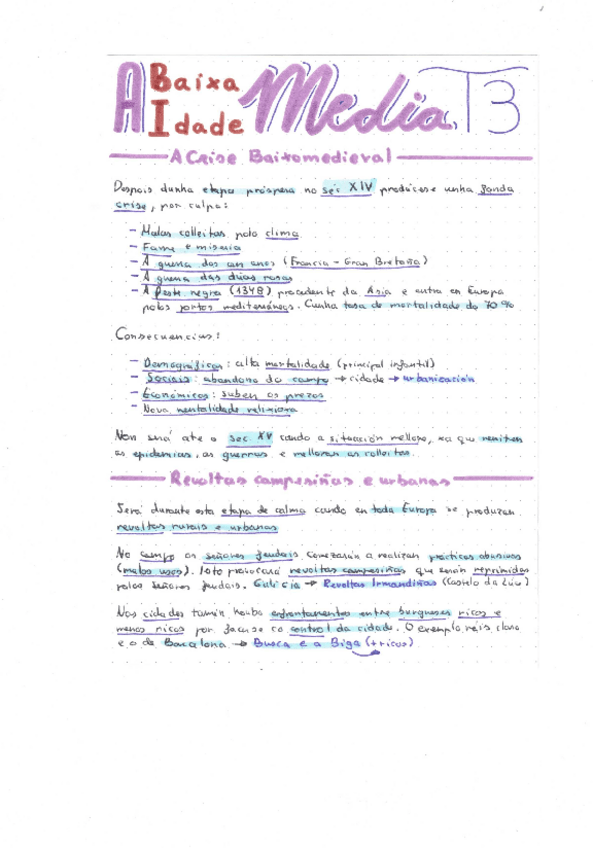 A Baixa Idade Media T3
A Crise Baixomedieval
Despois dunha etapa próspera no séc XIV prodúcese unha fonda
crise, por culpa:
- Malas colleitas polo clima
- Fame e miseria
- A guerra dos cen anos (Francia - Gran Bretaña)
- A guerra das dúas rosas
- A Peste negra (1348) procedente da Asia e entra en Europa
polos portos mediterráneos. Cunha tasa de mortalidade do 70%
Consecuencias:
- Demográficas: alta mortalidade (principal infantil)
- Sociais: abandono do campo → cidade → urbanización
- Económicos: suben os prezos
- Nova mentalidade relixiosa
Non será ate o séc XV cando a situación mellore, xa que remiten
as epidemias, as guerras e melloran as colleitas.
Revoltas campesiñas e urbanas
Será durante esta etapa de calma cando en toda Europa se produzan
revoltas rurais e urbanas
No campo os señores feudais comezarán a realizar prácticas abusivas
(malos usos). Isto provocará revoltas campesiñas que serán reprimidas
polos señores feudais. Galicia → Revoltas Irmandiñas (Castelo da
Nas cidades tamén houbo enfrontamentos entre burgueses ricos e
menos ricos por facerse co control da cidade. O exemplo máis claro
e o de Barcelona → Busca e a Biga (+ricos)